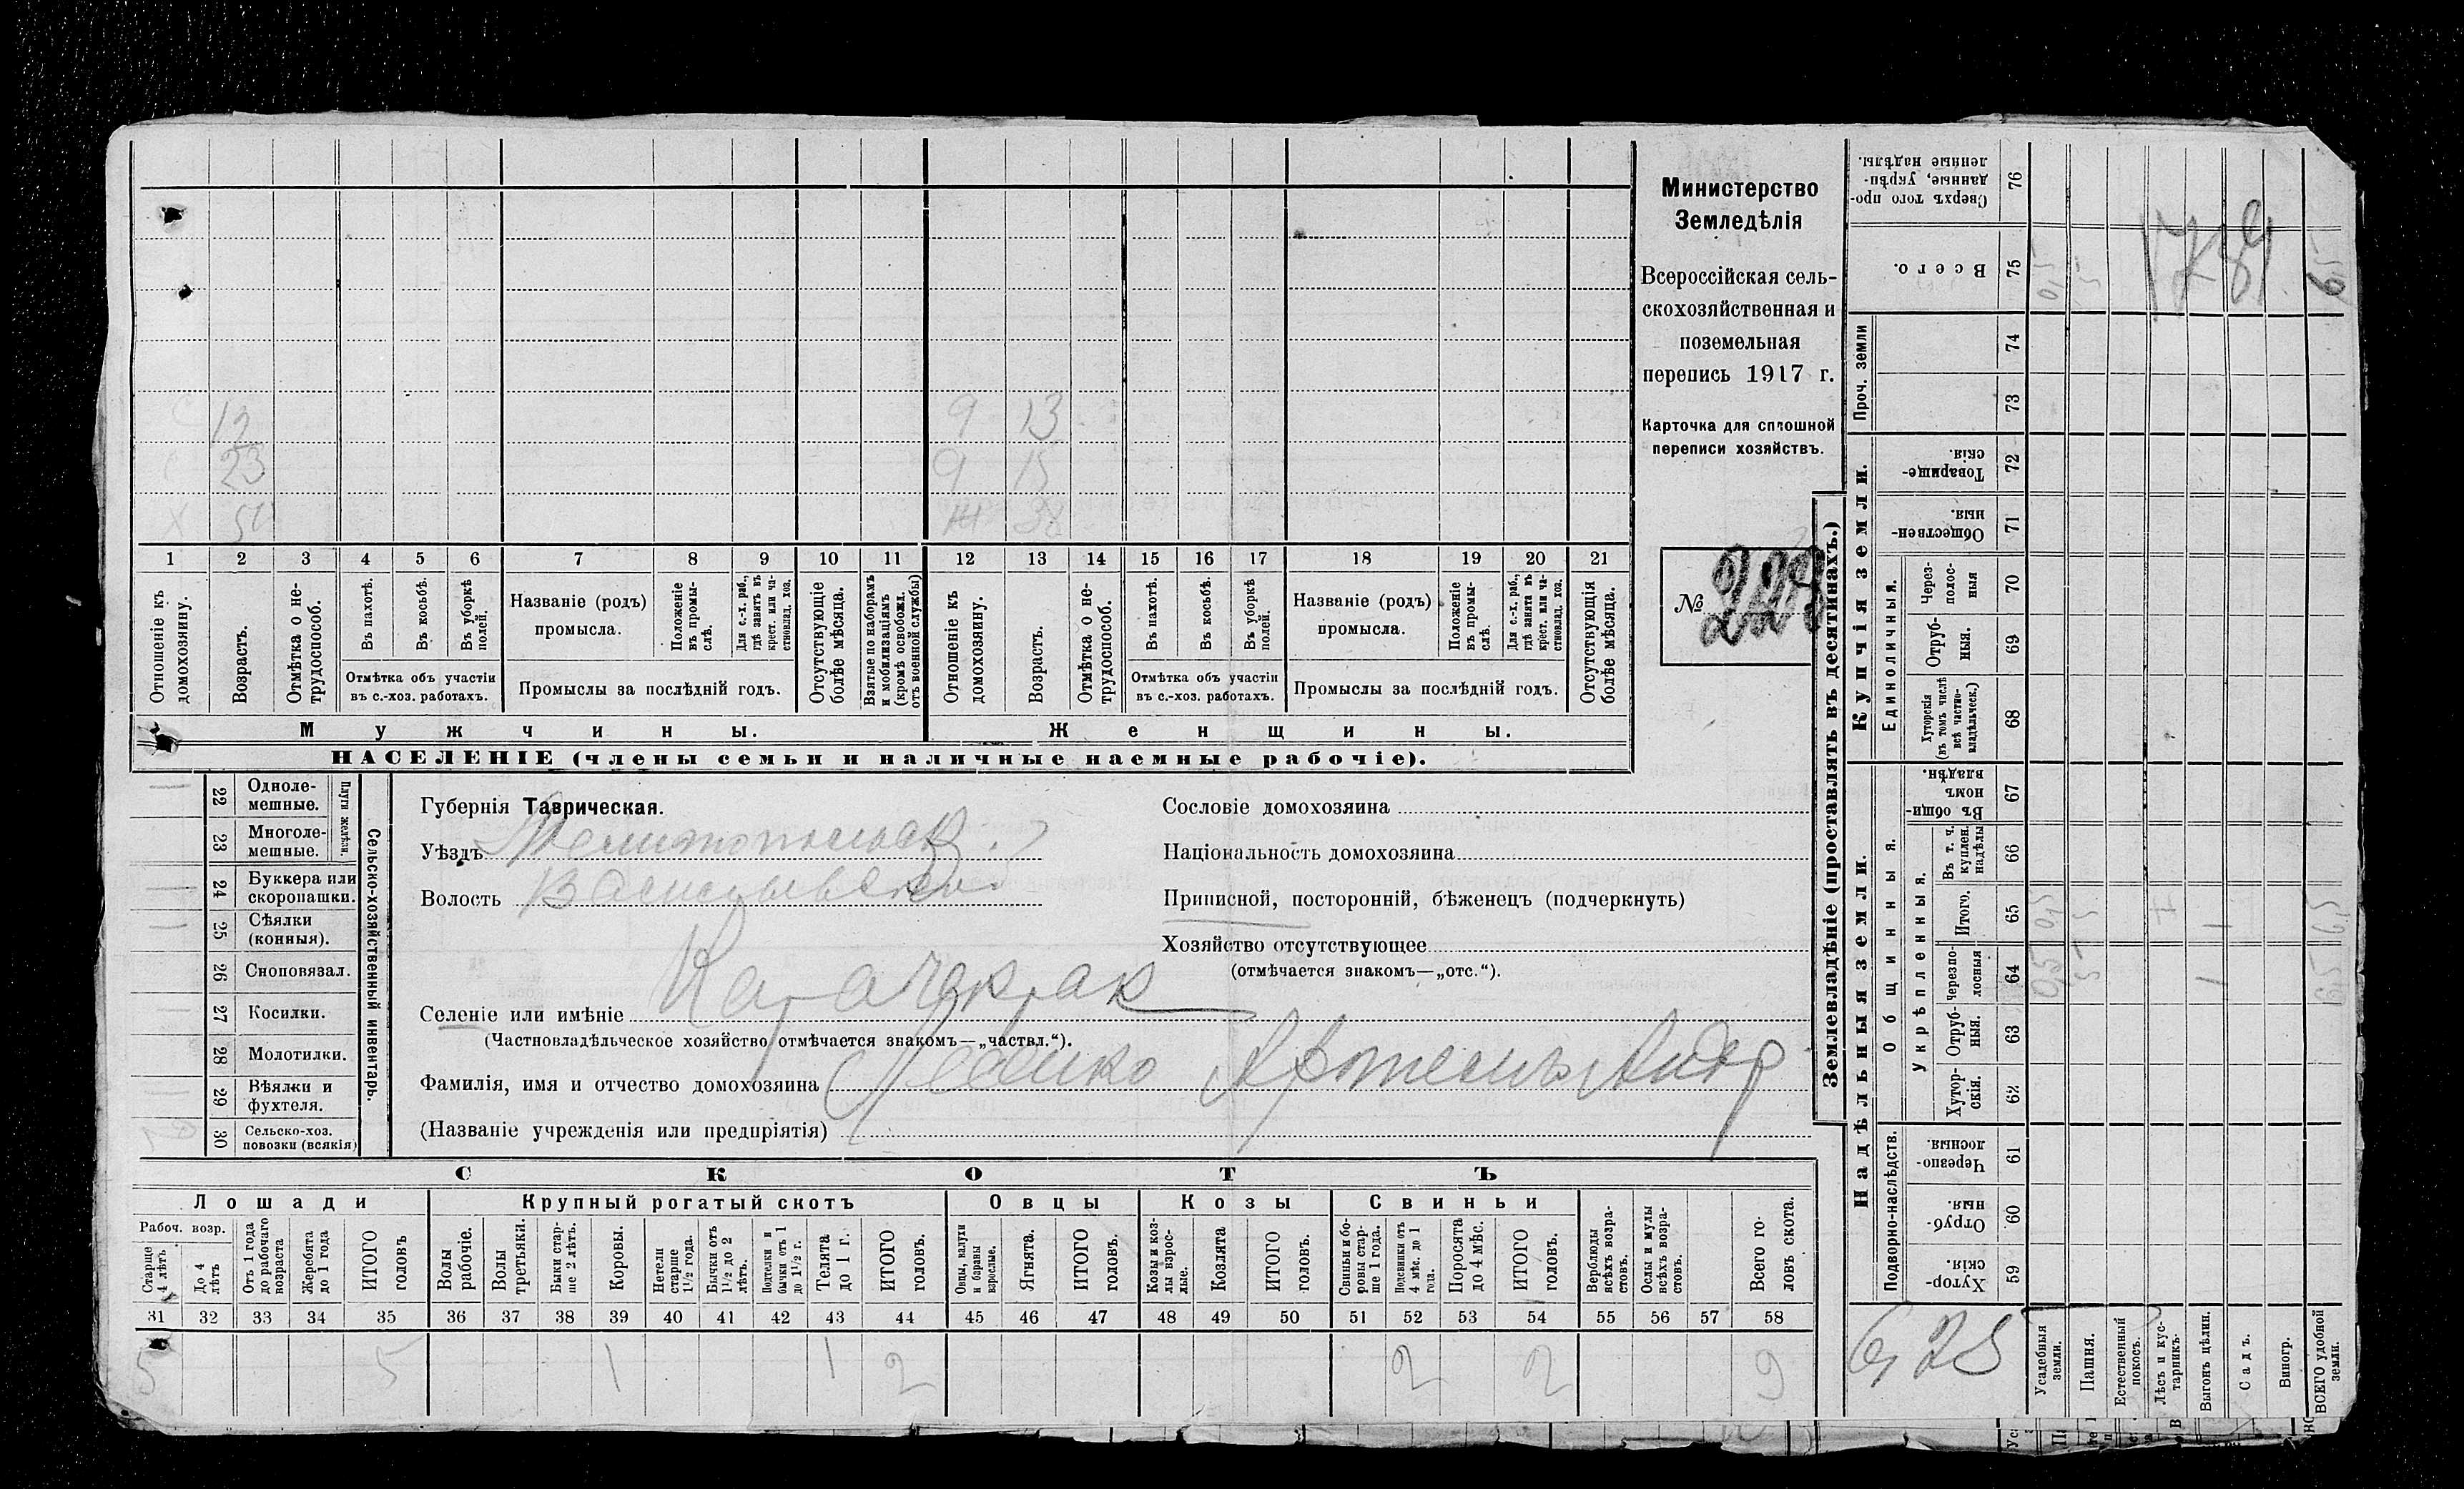 Министерство
Земледѣлія
Всероссійская сель-
скохозяйственная и
поземельная
перепись 1917 г.
Карточка для сплошной
переписи хозяйствъ.
№ 223
С 12 9 13
С 23 9 15
Х 51 38
1 2 3 4 5 6 7 8 9 10 11 12 13 14 15 16 17 18 19 20 21
Отношеніе къ домохозяину.
Возрастъ.
Отмѣтка о не-трудоспособ.
Въ пахотѣ.
Въ косьбѣ.
Въ уборкѣ полей.
Отмѣтка объ участіи
въ с.-хоз. работахъ.
Названіе (родъ)
промысла.
Положеніе въ промы-слѣ.
Для с.-х. раб., гдѣ занятъ въ крест. или ча-стновлад. хоз.
Промыслы за послѣдній годъ.
Отсутствующіе болѣе мѣсяца.
Взятые по наборамъ и мобилизаціямъ (кромѣ освобожд. отъ военной службы)
Отношеніе къ домохозяину.
Возрастъ.
Отмѣтка о не-трудоспособ.
Въ пахотѣ.
Въ косьбѣ.
Въ уборкѣ полей.
Отмѣтка объ участіи
въ с.-хоз. работахъ.
Названіе (родъ)
промысла.
Положеніе въ промы-слѣ.
Для с.-х. раб., гдѣ занята въ крест. или ча-стновлад. хоз.
Промыслы за послѣдній годъ.
Отсутствующія болѣе мѣсяца.
Мужчины. Женщины.
НАСЕЛЕНІЕ (члены семьи и наличные наемные рабочіе).
22 Одноле-мешные.
23 Многоле-мешные.
Плуги желѣзн.
24 Буккера или скоропашки.
25 Сѣялки (конныя).
26 Сноповязал.
27 Косилки.
28 Молотилки.
29 Вѣялки и фухтеля.
30 Сельско-хоз. повозки (всякія)
Сельско-хозяйственный инвентарь.
Губернія Таврическая.
Уѣздъ Мелитопольск.
Волость Васильевск.
Сословіе домохозяина
Національность домохозяина
Приписной, посторонній, бѣженецъ (подчеркнуть)
Хозяйство отсутствующее
(отмѣчается знакомъ—„отс.“).
Селеніе или имѣніе Карачекрак
(Частновладѣльческое хозяйство отмѣчается знакомъ—„частвл.“).
Фамилія, имя и отчество домохозяина
(Названіе учрежденія или предпріятія)
СКОТЪ
Лошади Крупный рогатый скотъ Овцы Козы Свиньи
Рабоч. возр.
Старше 4 лѣтъ
До 4 лѣтъ
Отъ 1 года до рабочаго возраста
Жеребята до 1 года
ИТОГО головъ
Волы рабочіе.
Волы третьяки.
Быки стар-ше 2 лѣтъ.
Коровы.
Нетели старше 1½ года.
Бычки отъ 1½ до 2 лѣтъ.
Подтелки и бычки отъ 1 до 1½ г.
Телята до 1 г.
ИТОГО головъ.
Овцы, валухи и бараны взрослые.
Ягнята.
ИТОГО головъ.
Козы и коз-лы взрос-лые.
Козлята
ИТОГО головъ.
Свиньи и бо-ровы стар-ше 1 года.
Подсвинки отъ 4 мѣс. до 1 года.
Поросята до 4 мѣс.
ИТОГО головъ.
Верблюды всѣхъ возра-стовъ.
Ослы и мулы всѣхъ возра-стовъ.
Всего го-ловъ скота.
31 32 33 34 35 36 37 38 39 40 41 42 43 44 45 46 47 48 49 50 51 52 53 54 55 56 57 58
5 5 1 1 2 2 2 9
Землевладѣніе (проставлять въ десятинахъ.)
Надѣльныя земли. Купчія земли. Проч. земли
Подворно-наслѣдств. Общинныя. Укрѣпленныя. Единоличныя.
Сверхъ того про-данные, укрѣп-ленные надѣлы. 76
Всего. 75 0,5 5 6,5
74
73
Товарище-скія. 72
Обществен-ныя. 71
Через-полос-ныя 70
Отруб-ныя. 69
Хуторскія (въ томъ числѣ всѣ частно-владѣльческ.) 68
Въ общин-номъ владѣн. 67
Въ т. ч. куплен. надѣлы 66
Итого. 65 0,5 5 1 6,5
Черезпо-лосныя 64 0,5 5 1 6,5
Отруб-ныя. 63
Хутор-скія. 62
Черезпо-лосныя. 61
Отруб-ныя. 60
Хутор-скія. 59
1789
6,25
Усадебныя земли.
Пашня.
Естественный покосъ.
Лѣсъ и кус-тарникъ.
Выгонъ цѣлин.
Садъ.
Виногр.
ВСЕГО удобной земли.